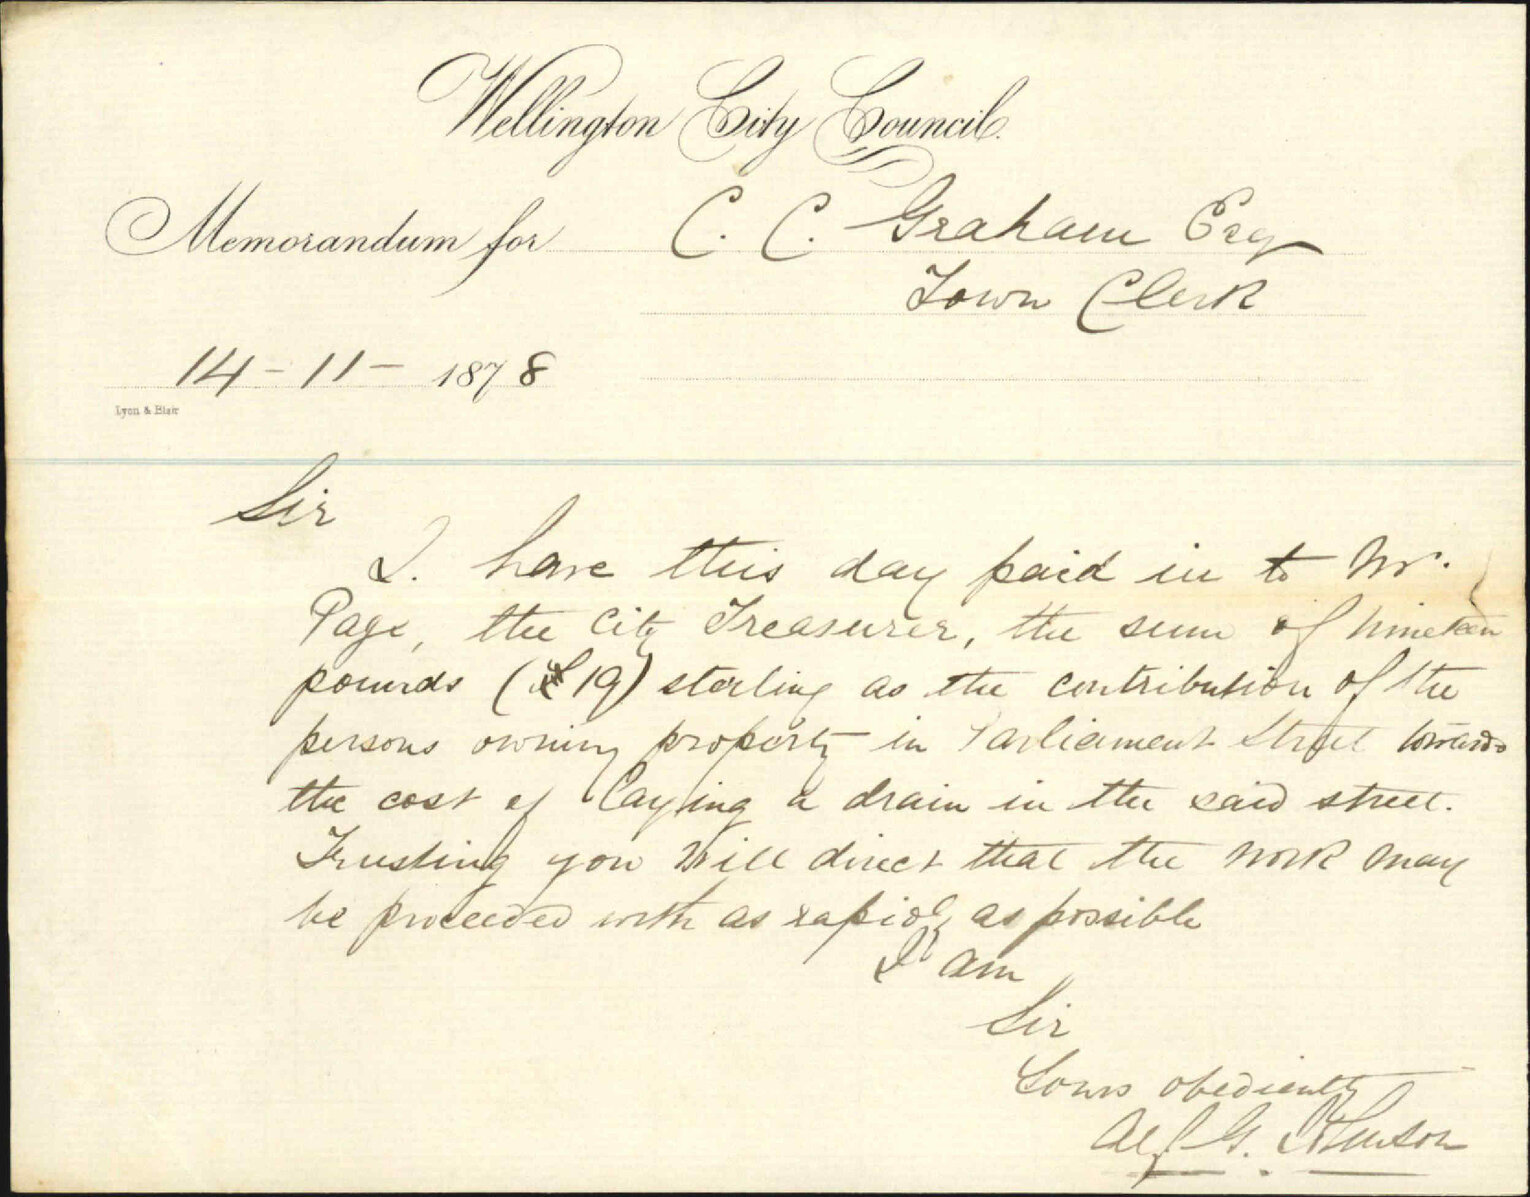 Wellington City Council.
Memorandum for C. C. Graham Esq
Town Clerk
14-11-1878
Lyon & Blair
Sir
I. have this day paid in to Mr.
Page, the City Treasurer, the sum of nineteen
pounds (£19) sterling as the contribution of the
persons owning property in Parliament Street towards
the cost of laying a drain in the said street.
Trusting you will direct that the work may
be proceeded with as rapidly as possible
I am
Sir
Yours obediently
Alf G.